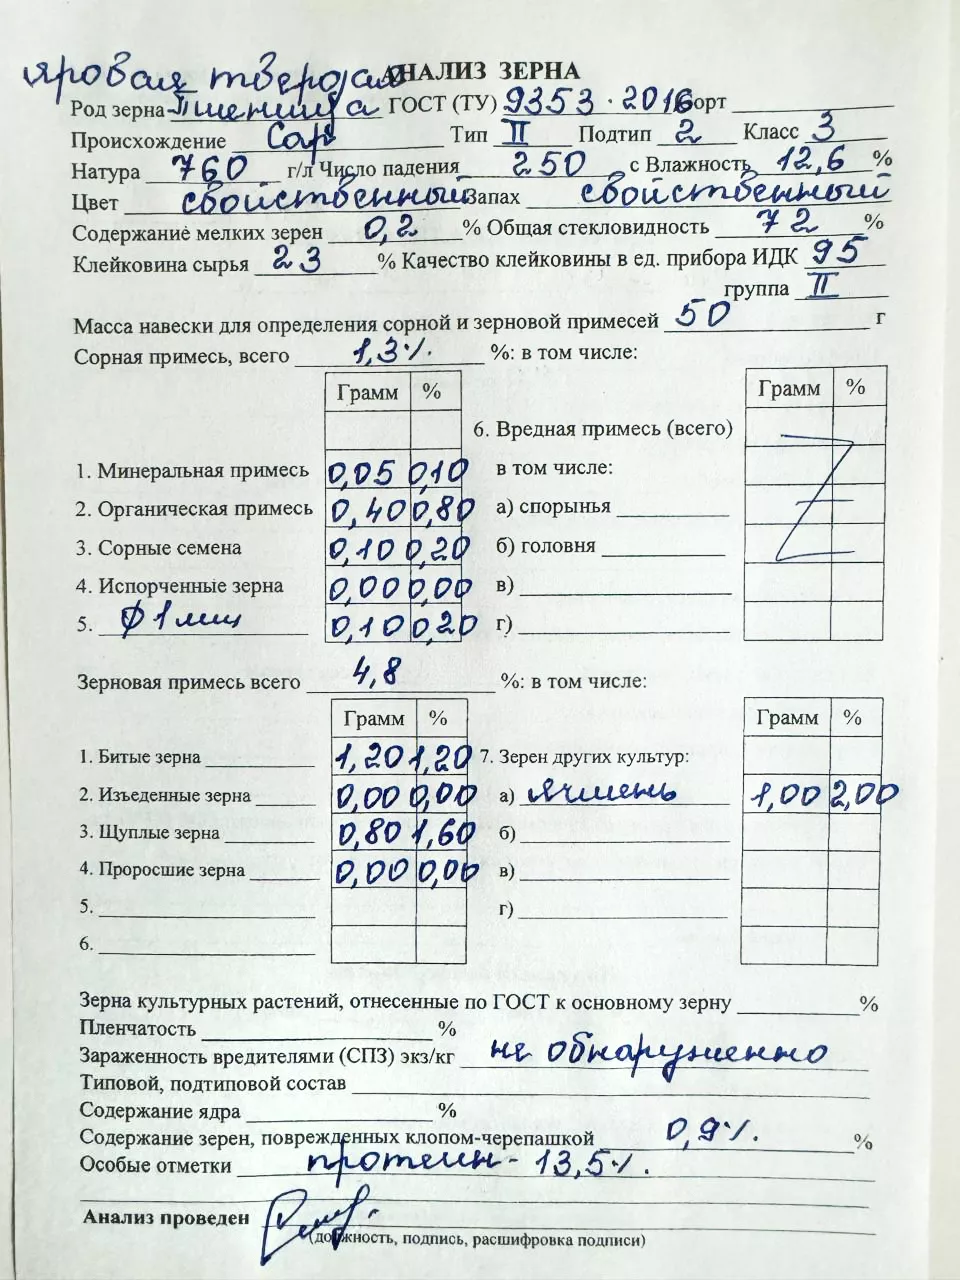 яровая твердая АНАЛИЗ ЗЕРНА
Род зерна Пшеница ГОСТ (ТУ) 9353 · 2016 Сорт
Происхождение Сар Тип II Подтип 2 Класс 3
Натура 760 г/л Число падения 250 с Влажность 12,6 %
Цвет свойственный Запах свойственный
Содержание мелких зерен 0,2 % Общая стекловидность 72 %
Клейковина сырья 23 % Качество клейковины в ед. прибора ИДК 95
группа II
Масса навески для определения сорной и зерновой примесей 50 г
Сорная примесь, всего 1,3% %: в том числе:
Грамм % Грамм %
6. Вредная примесь (всего)
1. Минеральная примесь 0,05 0,10 в том числе:
2. Органическая примесь 0,40 0,80 а) спорынья
3. Сорные семена 0,10 0,20 б) головня
4. Испорченные зерна 0,00 0,00 в)
5. ф1мм 0,10 0,20 г)
Зерновая примесь всего 4,8 %: в том числе:
Грамм % Грамм %
1. Битые зерна 1,20 1,20 7. Зерен других культур:
2. Изъеденные зерна 0,00 0,00 а) Ячмень 1,00 2,00
3. Щуплые зерна 0,80 1,60 б)
4. Проросшие зерна 0,00 0,00 в)
5. г)
6.
Зерна культурных растений, отнесенные по ГОСТ к основному зерну %
Пленчатость %
Зараженность вредителями (СПЗ) экз/кг не обнаруженно
Типовой, подтиповой состав
Содержание ядра %
Содержание зерен, поврежденных клопом-черепашкой 0,9%. %
Особые отметки протеин - 13,5%.
Анализ проведен
(должность, подпись, расшифровка подписи)